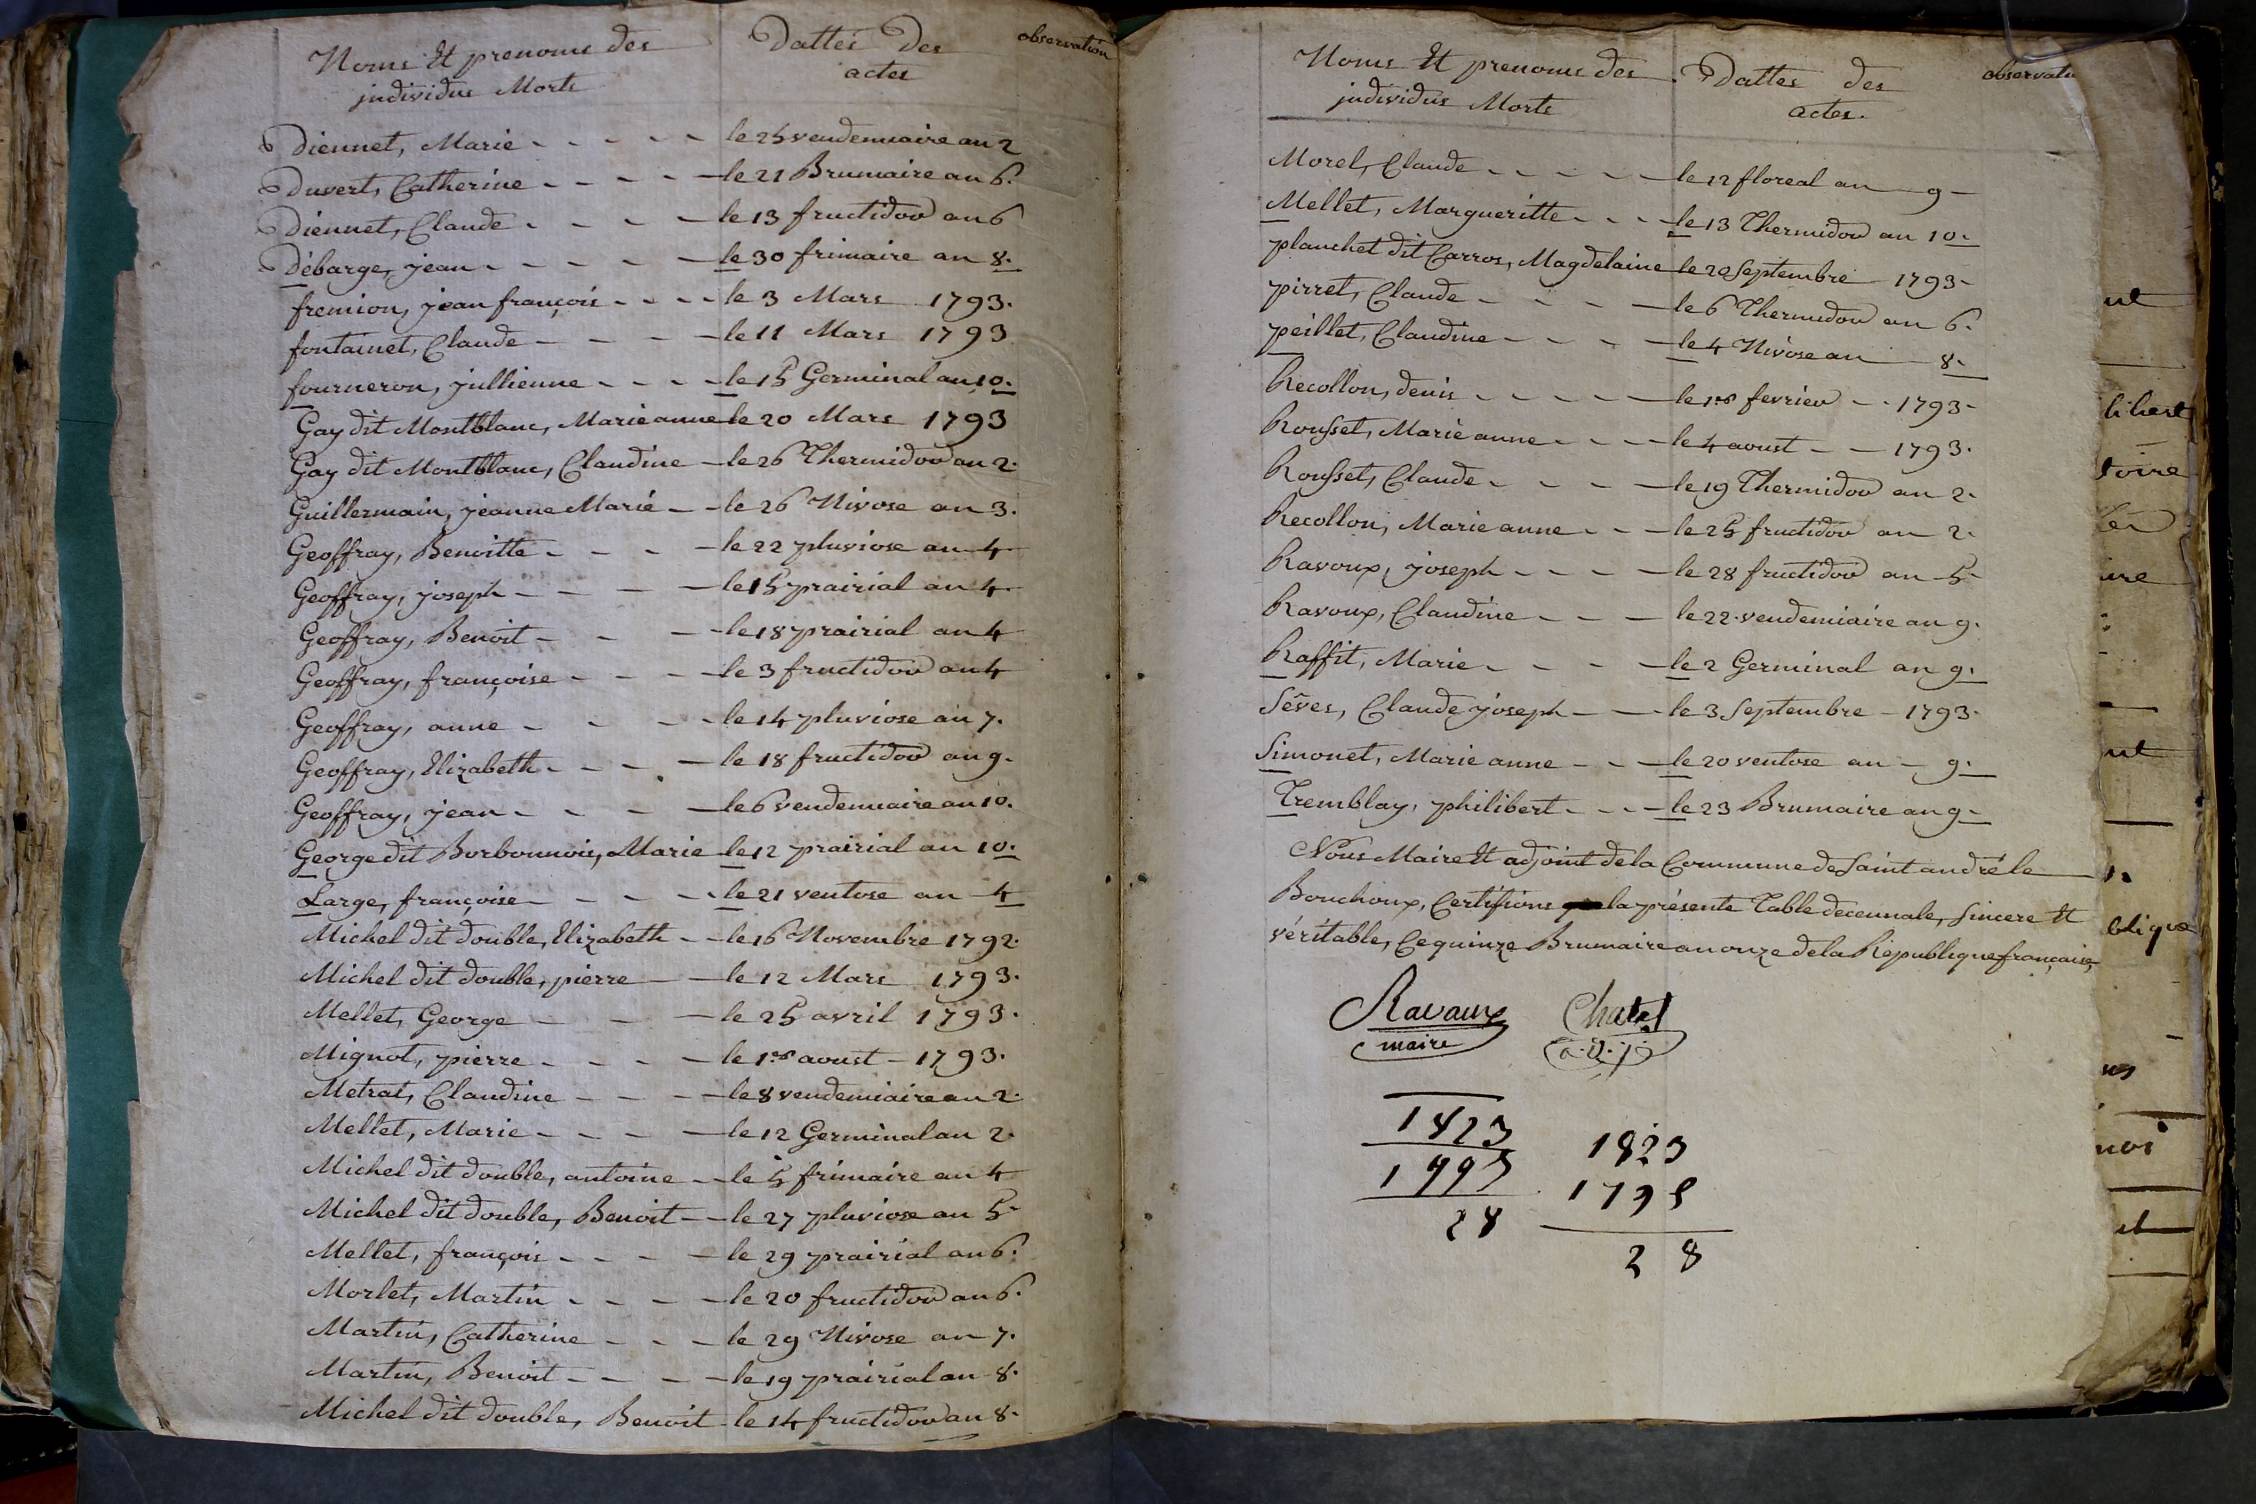 Noms Et prenoms des Dattes Des observation
individus Morts actes
Diennet, Marie - - - - - le 25 vendemiaire an 2
Duvert, Catherine - - - - le 21 Brumaire an 6.
Diennet, Claude - - - - le 13 fructidor an 6
Débarge, jean - - - - - le 30 frimaire an 8.
fremion, jean françois - - - - le 3 Mars 1793.
fontainet, Claude - - - - le 11 Mars 1793
fourneron, jullienne - - - - le 15 Germinal an 10.
Gay dit Montblanc, Marie anne le 20 Mars 1793
Gay dit Montblanc, Claudine - le 26 Thermidor an 2.
Guillermain, jeanne Marie - - le 26 Nivose an 3.
Geoffray, Benoitte - - - - le 22 pluviose an 4
Geoffray, joseph - - - - le 15 prairial an 4
Geoffray, Benoit - - - - le 18 prairial an 4
Geoffray, françoise - - - - le 3 fructidor an 4
Geoffray, anne - - - - le 14 pluviose an 7.
Geoffray, Elizabeth - - - - le 18 fructidor an 9.
Geoffray, jean - - - - le 6 vendemiaire an 10.
George dit Borbonnois, Marie le 12 prairial an 10.
Large, françoise - - - - le 21 ventose an 4
Michel dit double, Elizabeth - - le 16 Novembre 1792.
Michel dit double, pierre - - le 12 Mars 1793.
Mellet, George - - - le 25 avril 1793.
Mignot, pierre - - - - le 1er aoust - 1793.
Metrat, Claudine - - - - le 8 vendemiaire an 2.
Mellet, Marie - - - - le 12 Germinal an 2.
Michel dit double, antoine - - le 5 frimaire an 4
Michel dit double, Benoit - - le 27 pluviose an 5
Mellet, françois - - - - le 29 prairial an 6.
Morlet, Martin - - - - le 20 fructidor an 6.
Martin, Catherine - - - le 29 Nivose an 7.
Martin, Benoit - - - - le 19 prairial an 8.
Michel dit double, Benoit - le 14 fructidor an 8.
Noms Et prenoms des Dattes des observatio
individus Morts actes.
Morel, Claude - - - - - le 12 floreal an 9
Mellet, Margueritte - - - le 13 Thermidor an 10.
planchet dit Carros, Magdelaine le 20 Septembre 1793
pirret, Claude - - - - le 6 Thermidor an 6.
peillet, Claudine - - - - le 4 Nivose an 8.
Recollon, denis - - - - - le 1er fevrier - - 1793
Rousset, Marie anne - - - le 4 aoust - - 1793.
Rousset, Claude - - - - le 19 Thermidor an 2.
Recollon, Marie anne - - - le 25 fructidor an 2.
Ravoux, joseph - - - - le 28 fructidor an 5
Ravoux, Claudine - - - le 22 vendemiaire an 9.
Raffit, Marie - - - - le 2 Germinal an 9.
Sêves, Claude joseph - - le 3 Septembre - 1793.
Simonet, Marie anne - - - le 20 ventose an - 9.
Tremblay, philibert - - - le 23 Brumaire an 9
Nous Maire Et adjoint de la Commune de Saint andré le
Bouchoux, Certifions la présente Table decennale, Sincere Et
véritable, Ce quinze Brumaire an onze de la République française,
Ravaux Chatel
maire a.d.j.
1823 1823
1795 1795
28 28